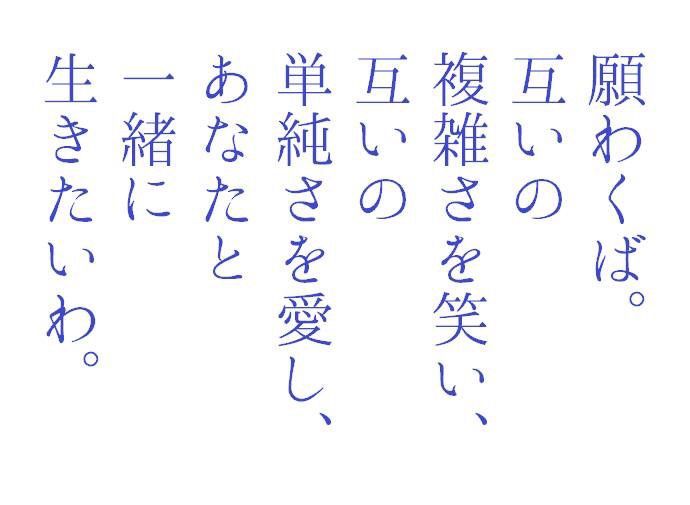 願わくば。
互いの
複雑さを笑い、
互いの
単純さを愛し、
あなたと
一緒に
生きたいわ。